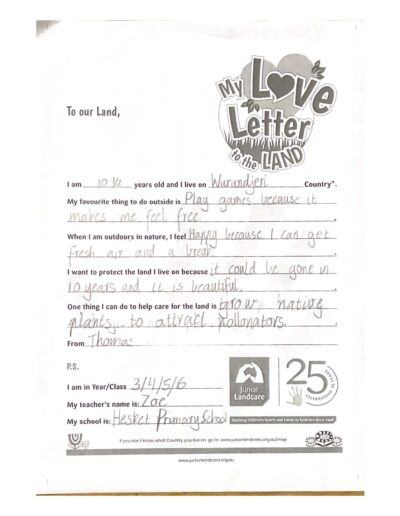 My Love
Letter
to the LAND
To our Land,
I am 10 ½ years old and I live on Wurundjeri Country*.
My favourite thing to do outside is Play games because it
makes me feel free.
When I am outdoors in nature, I feel Happy because I can get
fresh air and a break.
I want to protect the land I live on because it could be gone in
10 years and it is beautiful.
One thing I can do to help care for the land is grow native
plants to attract Pollonators.
From Thomas
P.S.
I am in Year/Class 3/4/5/6
My teacher's name is: Zoe
My school is: Hesket Primary School
Junior
Landcare
25
CELEBRATING
*If you don't know what Country you live on, go to: www.juniorlandcare.org.au/map
www.juniorlandcare.org.au